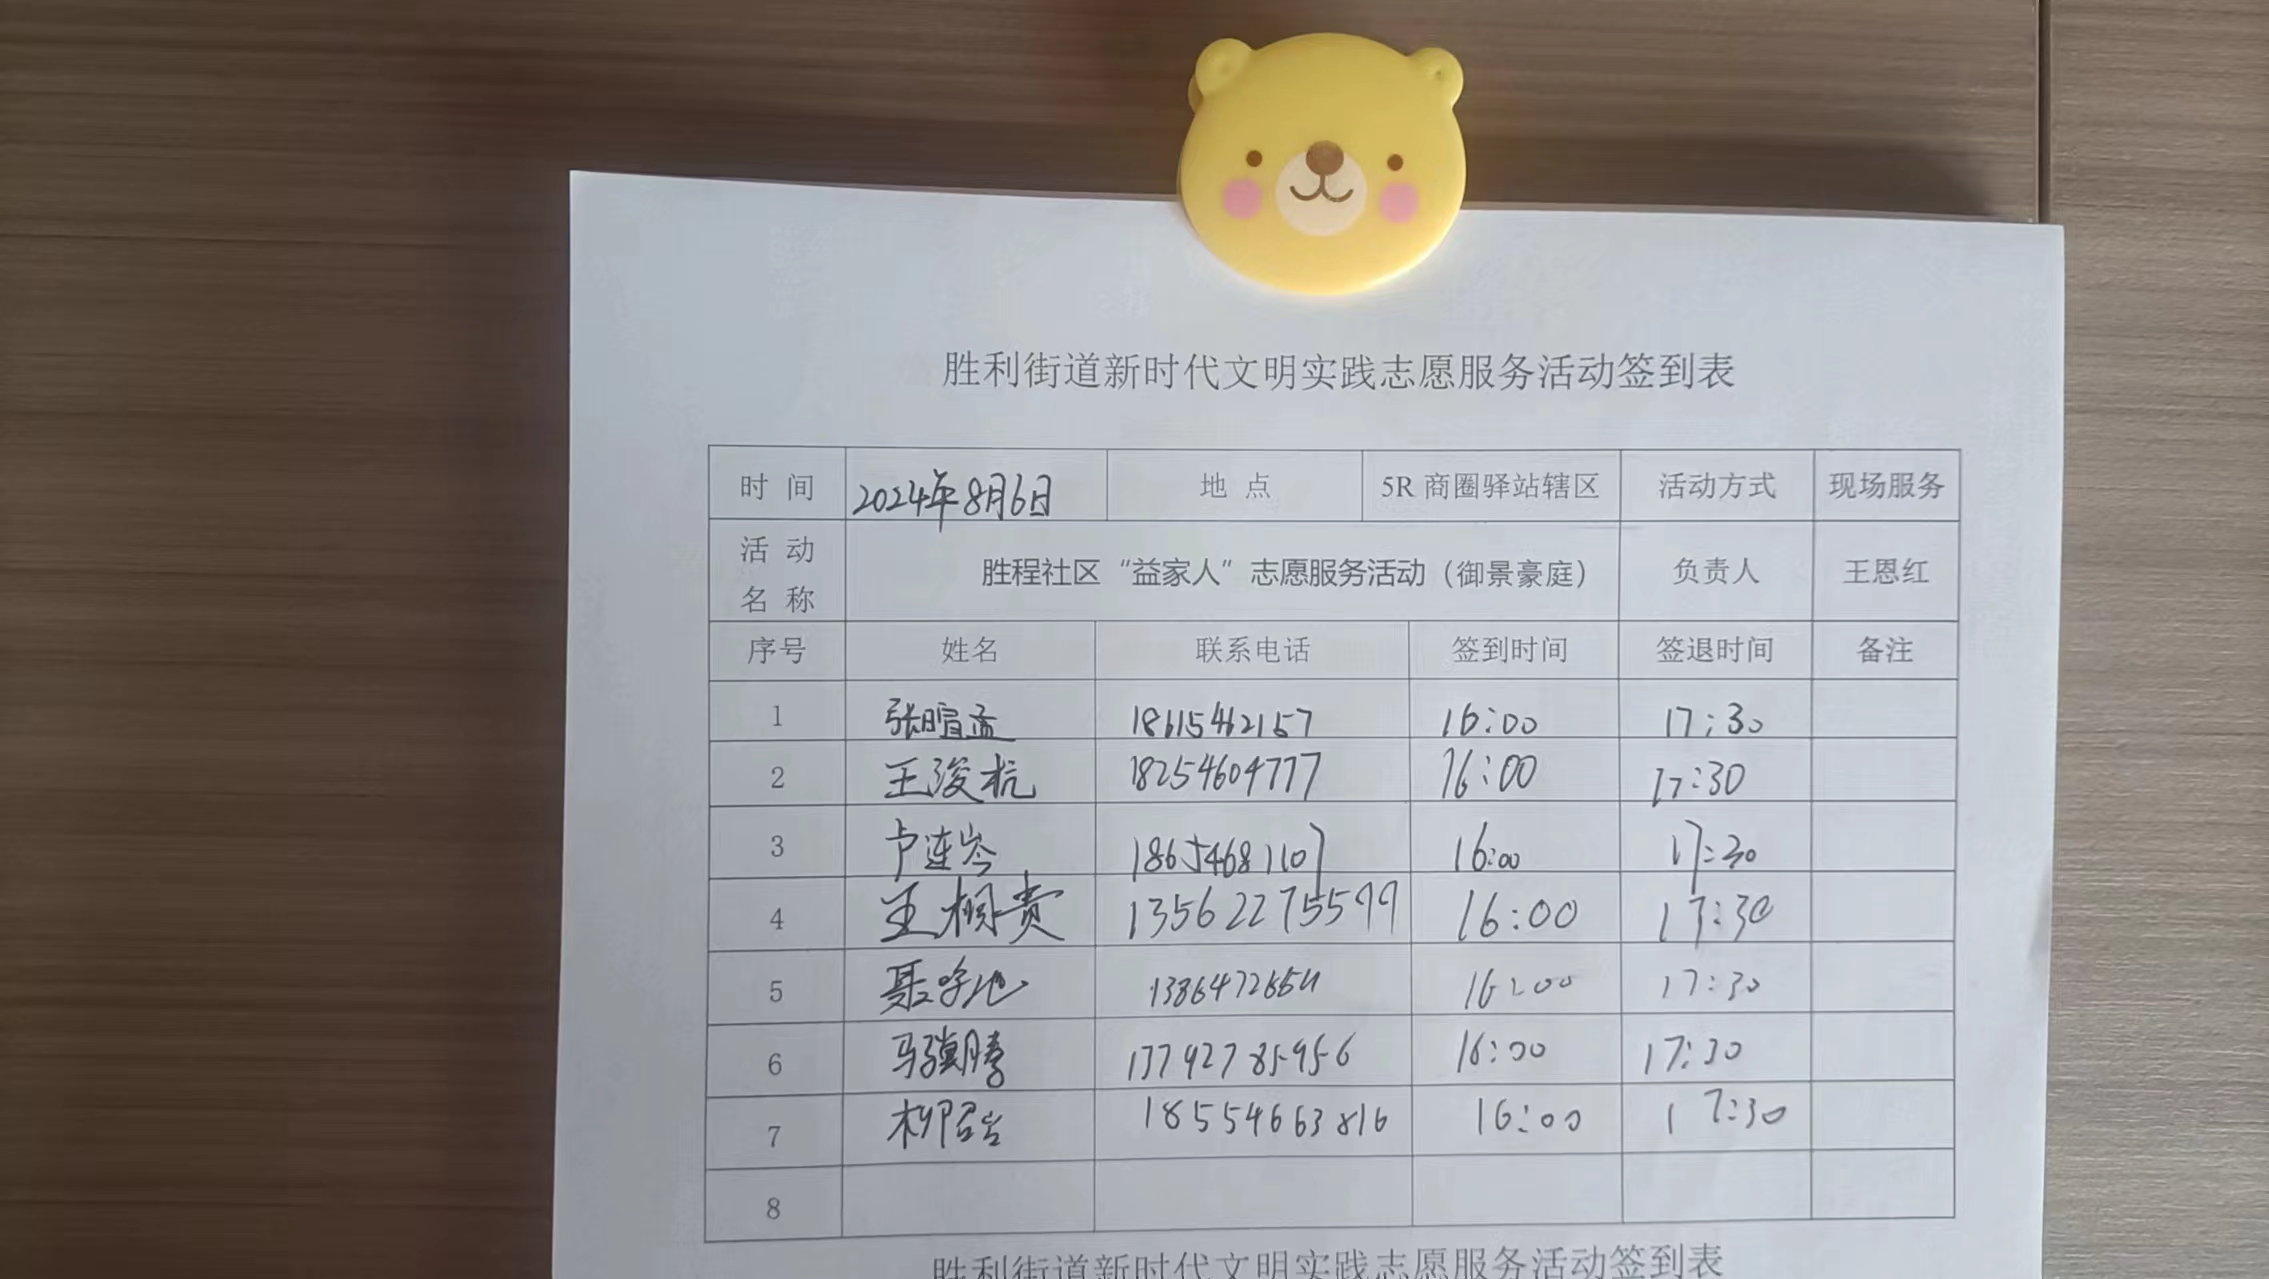 胜利街道新时代文明实践志愿服务活动签到表
时 间 2024年8月6日 地 点 5R 商圈驿站辖区 活动方式 现场服务
活 动 名 称 胜程社区“益家人”志愿服务活动（御景豪庭） 负责人 王恩红
序号 姓名 联系电话 签到时间 签退时间 备注
1 18615462157 16:00 17:30
2 王浚杭 18254604777 16:00 17:30
3 卢连岑 18654681107 16:00 17:30
4 13562275599 16:00 17:30
5 16:00 17:30
6 马骥腾 17792785956 16:00 17:30
7 18554663816 16:00 17:30
8
胜利街道新时代文明实践志愿服务活动签到表